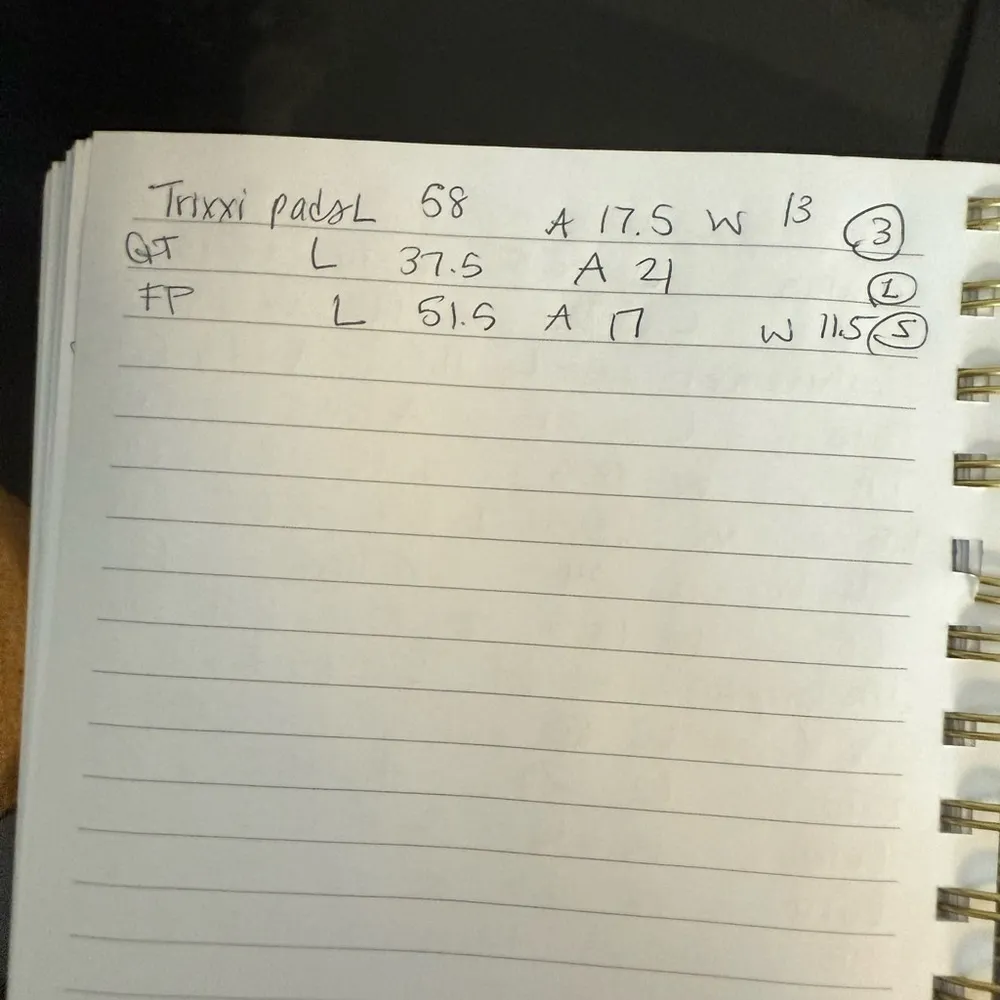 Trixxi pads L 68 A 17.5 W 13 3
QT L 37.5 A 21 1
FP L 51.5 A 17 W 11.5 5